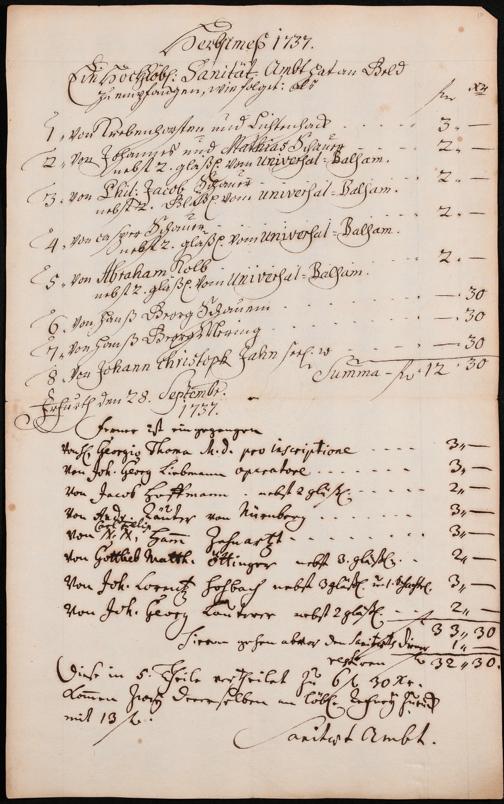 Herbstmeß 1737.
Ein Hochlöbl: Sanität Ambt hat an Geld
zu empfangen, wie folget: als
fr xr
1, von Krebenhorsten und Lustenhack . . . . . 3. —
2, von Johannes und Mathias Schauer . . . 2. —
nebst 2. gläßl. vom universal-Balsam.
3, von Phil: Jacob Schauer . . . 2. —
nebst 2. gläßl. vom universal-Balsam.
4, von casper Schauer . . . 2. —
nebst 2. gläßl. vom universal-Balsam.
5, von Abraham Kolb . . . 2. —
nebst 2. gläßl. vom universal-Balsam.
6, von Hanß Georg Schauern . . . — . 30
7, von Hanß Georg Mering . . . — . 30
8, von Johann Christoph Zahn . . . — . 30
Summa — fr 12 . 30
Erfurth den 28. Septembr.
1737.
Ferner ist eingegangen
von H. Georgio Thoma M.d. pro inscriptione — 3„ —
von Joh. Georg Liebmann operatore . . . 3„ —
von Jacob Hoffmann . nebst 2 gläßl. . . . 2„ —
von Andr. Reuter von Nürnberg . . . 3„ —
von N. N. Zahnartzt . . . 3„ —
von Gottlieb Matth. Öttinger nebst 3. gläßl. . . 2„ —
von Joh. Lorentz Hosbach nebst 3 gläßl. u. 1. 3„ —
von Joh. Georg Lauterer nebst 2 gläßl. . . 2„ —
33„ 30
Hievon gehen abwer den Sanitäts Diener 1„ —
restiren fr 32„ 30.
Diese in 5. Theile vertheilet zu 6 fr. 30 Xr.
Komen zwey derselben an löbl.
mit 13 fr.
Sanitæt Ambt.